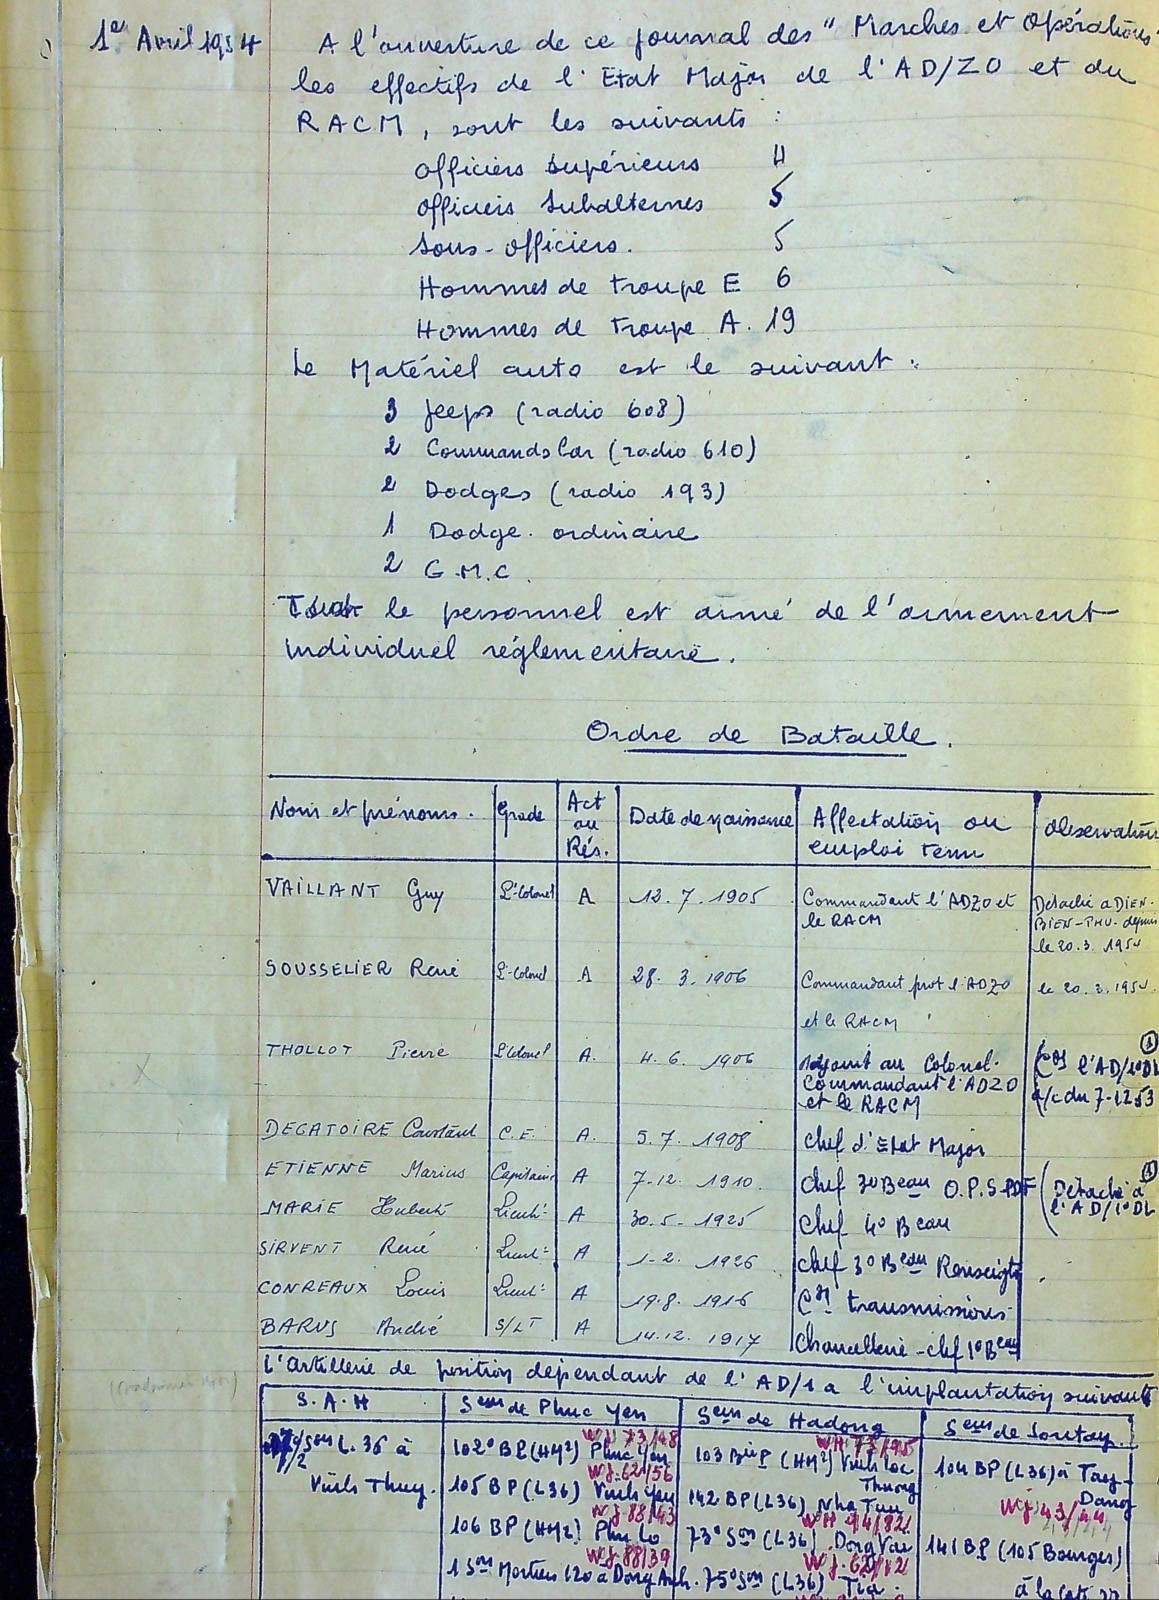 1er Avril 1954
A l'ouverture de ce journal des "Marches et Opérations"
les effectifs de l'Etat Major de l'AD/ZO et du
RACM, sont les suivants :
Officiers Supérieurs 4
Officiers Subalternes 5
Sous-officiers. 5
Hommes de troupe E 6
Hommes de troupe A. 19
Le Matériel auto est le suivant :
3 Jeeps (radio 608)
2 Commands Car (radio 610)
2 Dodges (radio 193)
1 Dodge ordinaire
2 G.M.C.
Tout le personnel est armé de l'armement
individuel réglementaire.
Ordre de Bataille.
Nom et prénoms. Grade Act ou Rés. Date de naissance Affectation ou emploi tenu Observation
VAILLANT Guy Lt-Colonel A 12.7.1905 Commandant l'ADZO et
le RACM
Détaché à DIEN-
BIEN-PHU depuis
le 20.3.1954
SOUSSELIER René Lt-Colonel A 28.3.1906 Commandant prot l'ADZO
et le RACM
le 20.3.1954
THOLLOT Pierre Lt Colonel A. 4.6.1906 Adjoint au Colonel
Commandant l'ADZO
et le RACM
(1)
Ct l'AD/1°DL
a/c du 7-12 53
DEGATOIRE Constant C.E. A. 5.7.1908 Chef d'Etat Major
ETIENNE Marius Capitaine A 7-12.1910. Chef 3°Beau O.P.S-PDF
(1)
Détaché à
l'AD/1°DL
MARIE Hubert Lieutt A 30.5-1925 Chef 4° Beau
SIRVENT René Lieutt A 1-2.1926 Chef 3°Beau Renseigts
CONREAUX Louis Lieutt A 19.8.1916 Ct transmissions
BARUS André S/LT A 14.12.1917 Chancellerie - chef 1°Beau
L'artillerie de position dépendant de l'AD/1 a l'implantation suivante
S.A.H Seur de Phuc Yen Seur de Hadong Seur de Sontay
Son L.36 à
Vinh Thuy.
WJ 73/48
102° BP (HM2) Phuc Yen
WJ.62/56
105 BP (L36) Vinh Yen
WJ.88/43
106 BP (HM2) Phu Lo
WJ.88/39
1 Son Mortiers 120 à Dong Anh.
WH 73/95
103 Bie P (HM2) Vinh Loc
Thuong
142 BP (L36) Nha Tuu
WH 94/82
73° Son (L36) Dong Vai
WJ.62/12
75° Son (L36) Tia.
104 BP (L36) à Tay-
Dang
WJ 43/44
141 BP (105 Bourges)
à la cote 22